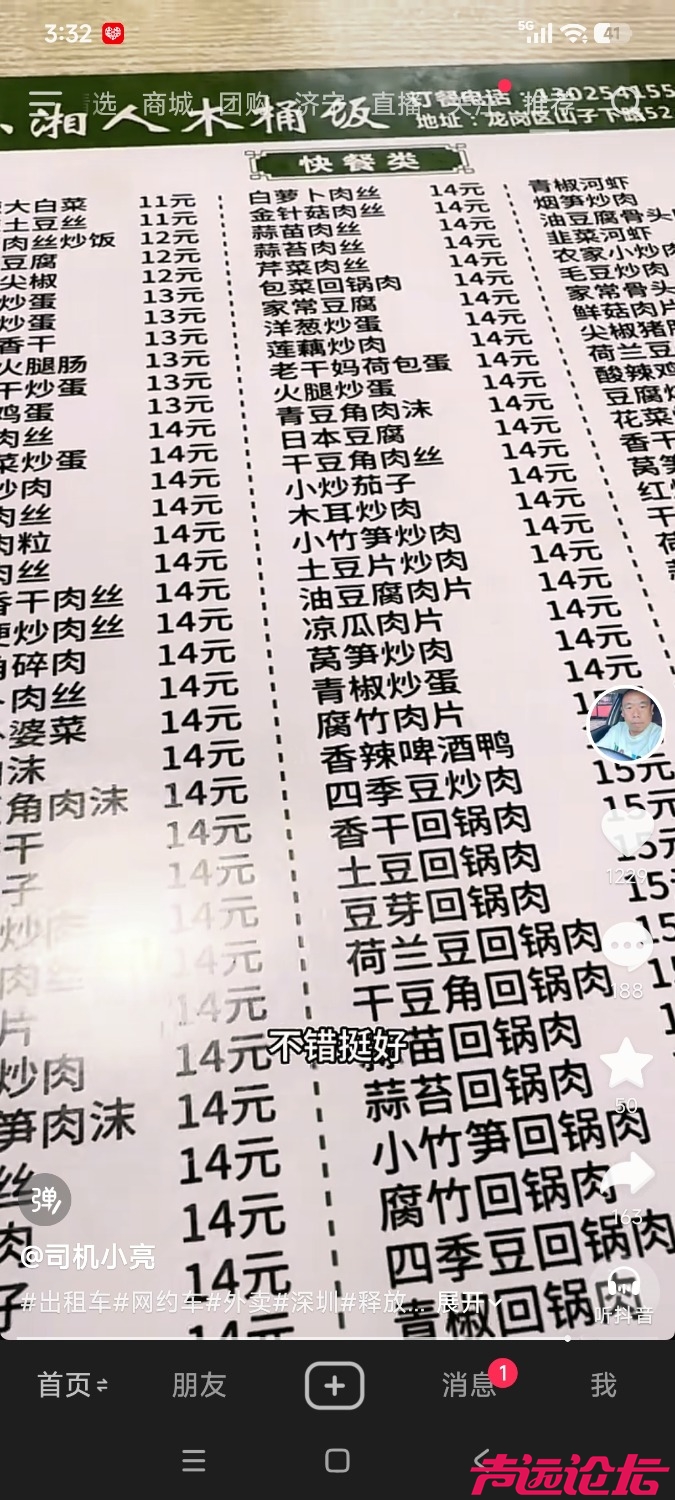 3:32
5G
41
选 商城 团购 济宁 直播 关注 推荐
湘人木桶饭
订餐电话：130254155
地址：龙岗区山子下路52
快餐类
大白菜 11元
土豆丝 11元
肉丝炒饭 12元
豆腐 12元
尖椒 12元
炒蛋 13元
炒蛋 13元
香干 13元
火腿肠 13元
干炒蛋 13元
鸡蛋 13元
肉丝 14元
菜炒蛋 14元
炒肉 14元
肉丝 14元
肉粒 14元
肉丝 14元
香干肉丝 14元
梗炒肉丝 14元
角碎肉 14元
肉丝 14元
婆菜 14元
肉沫 14元
角肉沫 14元
干 14元
子 14元
炒肉 14元
肉丝 14元
片 14元
炒肉 14元
笋肉沫 14元
丝 14元
肉 14元
子 14元
14元
白萝卜肉丝 14元
金针菇肉丝 14元
蒜苗肉丝 14元
蒜苔肉丝 14元
芹菜肉丝 14元
包菜回锅肉 14元
家常豆腐 14元
洋葱炒蛋 14元
莲藕炒肉 14元
老干妈荷包蛋 14元
火腿炒蛋 14元
青豆角肉沫 14元
日本豆腐 14元
干豆角肉丝 14元
小炒茄子 14元
木耳炒肉 14元
小竹笋炒肉 14元
土豆片炒肉 14元
油豆腐肉片 14元
凉瓜肉片 14元
莴笋炒肉 14元
青椒炒蛋
腐竹肉片
香辣啤酒鸭 15元
四季豆炒肉 15元
香干回锅肉 15元
土豆回锅肉 15
豆芽回锅肉 15
荷兰豆回锅肉
干豆角回锅肉
蒜苗回锅肉
蒜苔回锅肉
小竹笋回锅肉
腐竹回锅肉
四季豆回锅肉
青椒回锅肉
青椒河虾
烟笋炒肉
油豆腐骨头
韭菜河虾
农家小炒肉
毛豆炒肉
家常骨头
鲜菇肉片
尖椒猪
荷兰豆
酸辣鸡
豆腐
花菜
香干
莴笋
红
干
荷
不错挺好
1229
188
50
163
弹
@司机小亮
#出租车#网约车#外卖#深圳#释放... 展开
听抖音
首页
朋友
消息
1
我
声远论坛